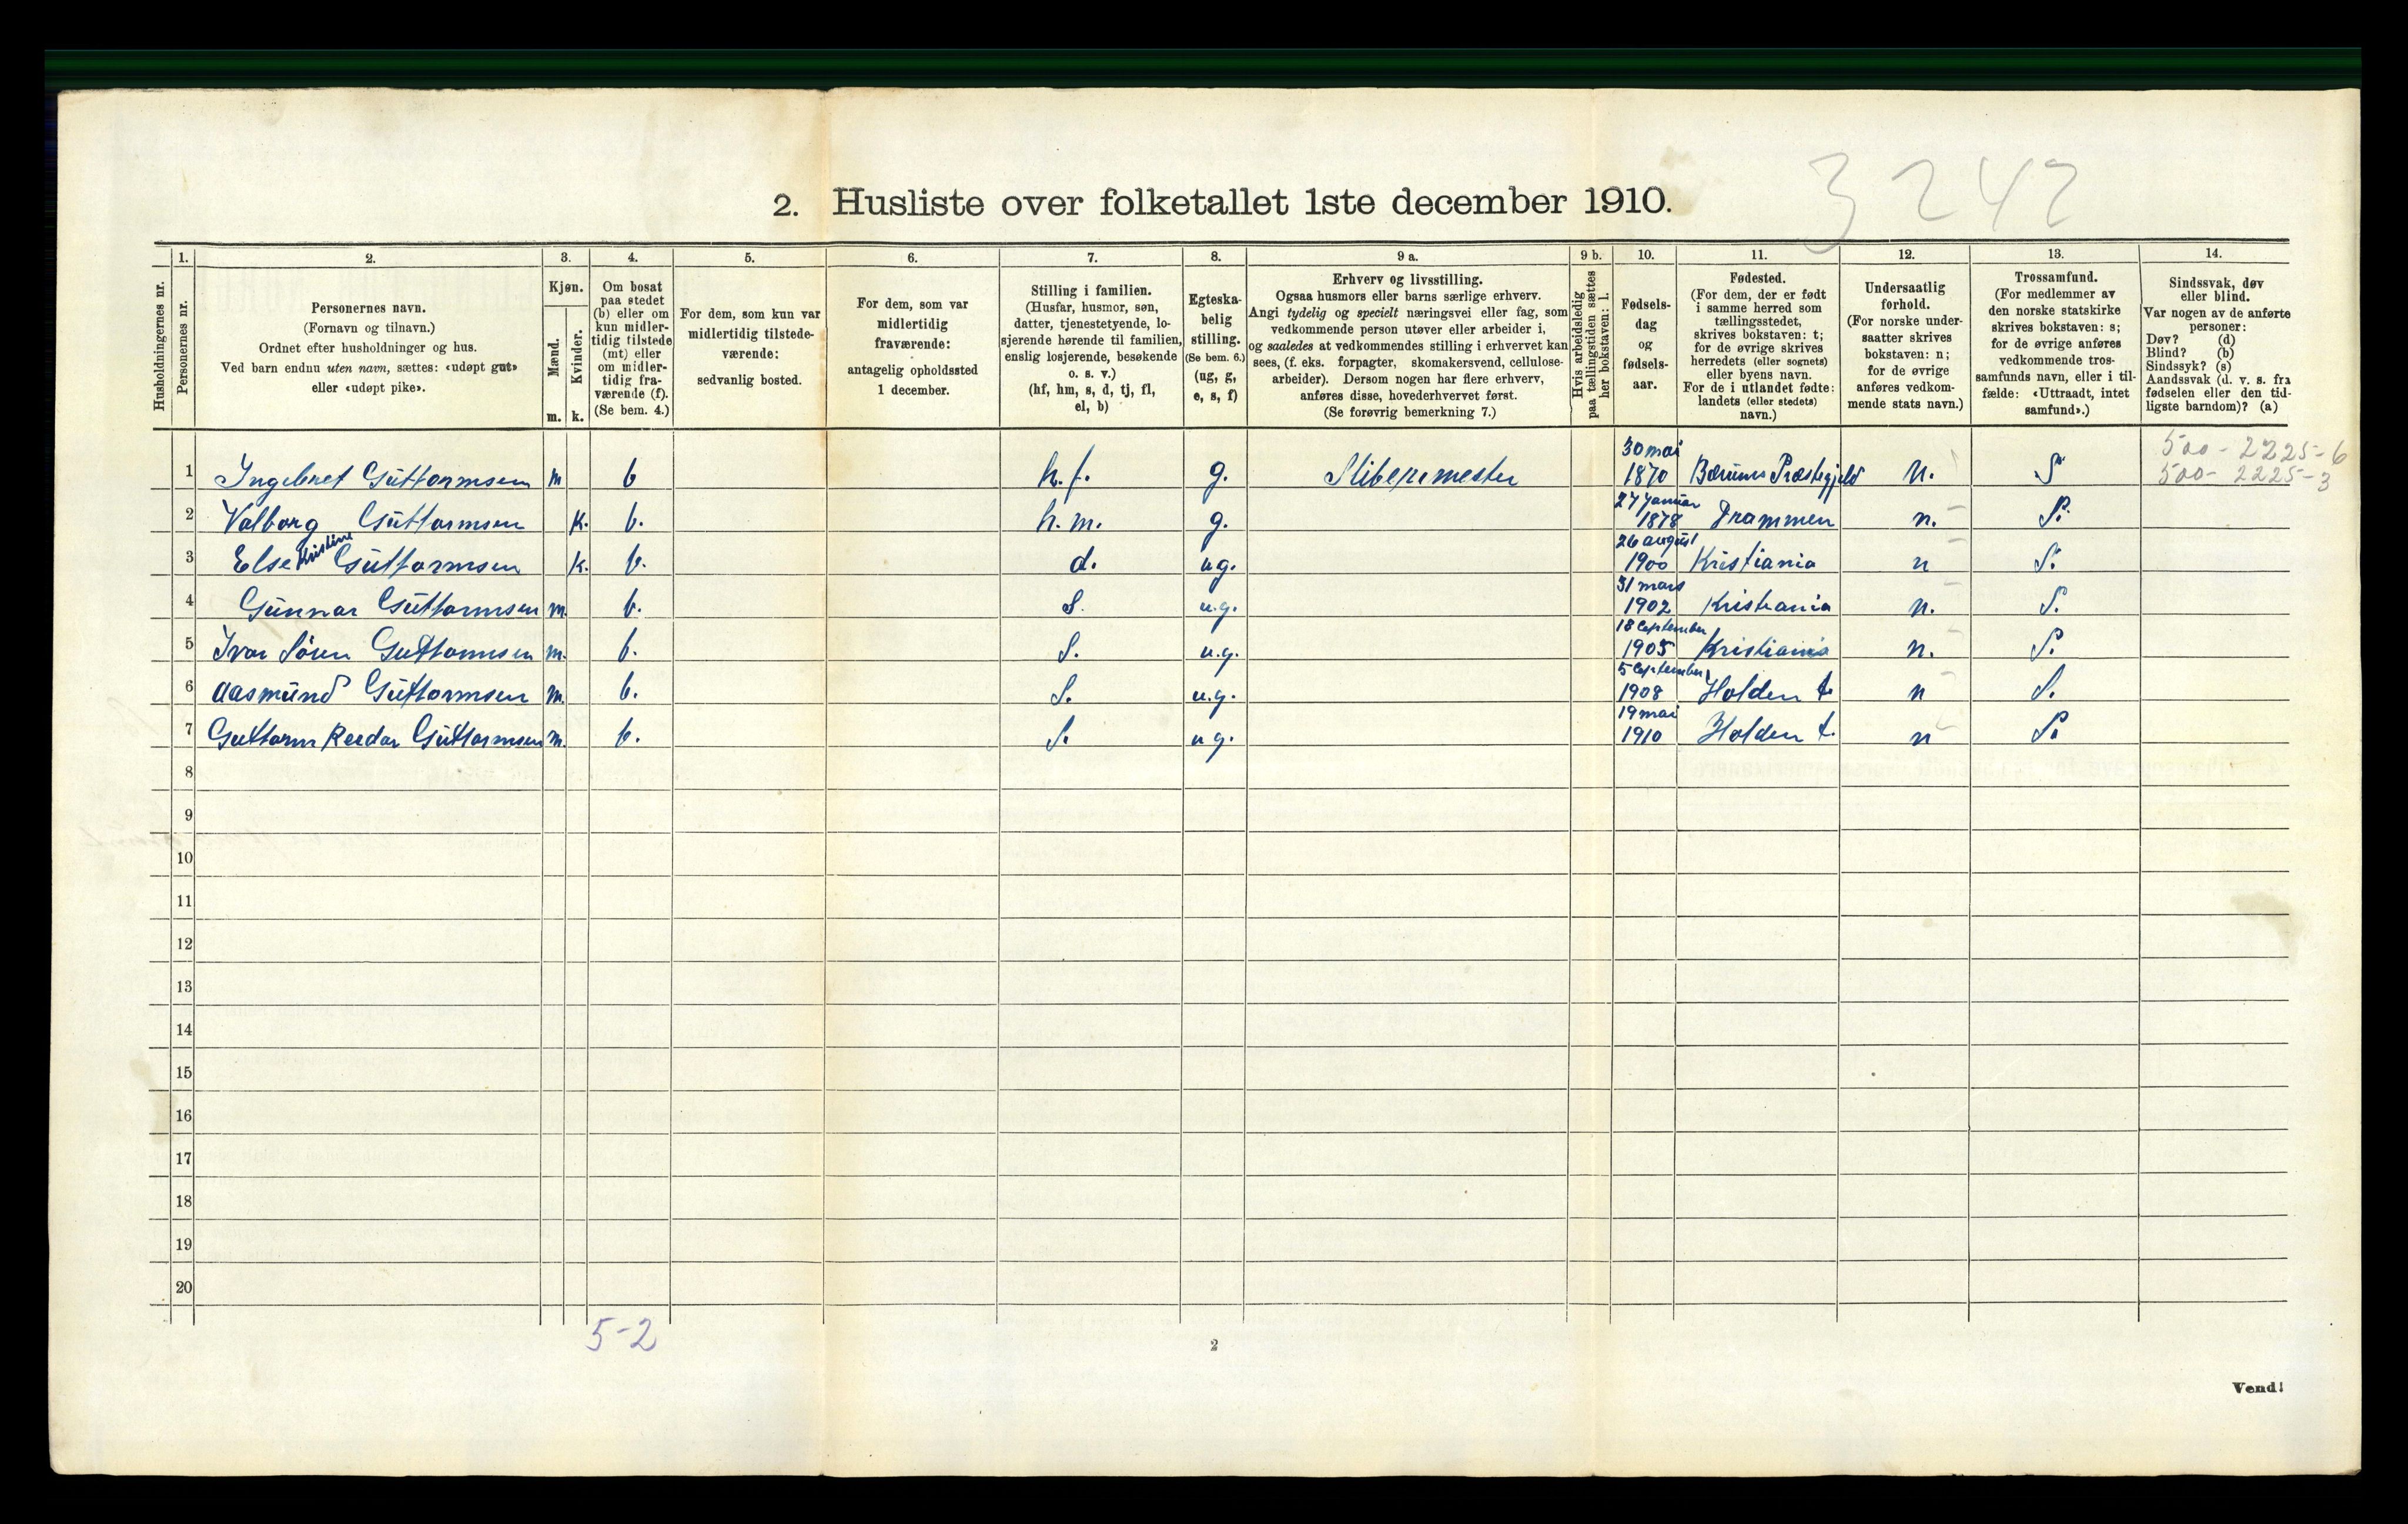 3242
2. Husliste over folketallet 1ste december 1910.
1. 2. 3. 4. 5. 6. 7. 8. 9 a. 9 b. 10. 11. 12. 13. 14.
Husholdningernes nr.
Personernes nr.
Personernes navn.
(Fornavn og tilnavn.)
Ordnet efter husholdninger og hus.
Ved barn endnu uten navn, sættes: «udøpt gut»
eller «udøpt pike».
Kjøn.
Mænd.
m.
Kvinder.
k.
Om bosat
paa stedet
(b) eller om
kun midler-
tidig tilstede
(mt) eller
om midler-
tidig fra-
værende (f).
(Se bem. 4.)
For dem, som kun var
midlertidig tilstede-
værende:
sedvanlig bosted.
For dem, som var
midlertidig
fraværende:
antagelig opholdssted
1 december.
Stilling i familien.
(Husfar, husmor, søn,
datter, tjenestetyende, lo-
sjerende hørende til familien,
enslig losjerende, besøkende
o. s. v.)
(hf, hm, s, d, tj, fl,
el, b)
Egteska-
belig
stilling.
(Se bem. 6.)
(ug, g,
e, s, f)
Erhverv og livsstilling.
Ogsaa husmors eller barns særlige erhverv.
Angi tydelig og specielt næringsvei eller fag, som
vedkommende person utøver eller arbeider i,
og saaledes at vedkommendes stilling i erhvervet kan
sees, (f. eks. forpagter, skomakersvend, cellulose-
arbeider). Dersom nogen har flere erhverv,
anføres disse, hovederhvervet først.
(Se forøvrig bemerkning 7.)
Hvis arbeidsledig
paa tællingstiden sættes
her bokstaven: l.
Fødsels-
dag
og
fødsels-
aar.
Fødested.
(For dem, der er født
i samme herred som
tællingsstedet,
skrives bokstaven: t;
for de øvrige skrives
herredets (eller sognets)
eller byens navn.
For de i utlandet fødte:
landets (eller stedets)
navn.)
Undersaatlig
forhold.
(For norske under-
saatter skrives
bokstaven: n;
for de øvrige
anføres vedkom-
mende stats navn.)
Trossamfund.
(For medlemmer av
den norske statskirke
skrives bokstaven: s;
for de øvrige anføres
vedkommende tros-
samfunds navn, eller i til-
fælde: «Uttraadt, intet
samfund».)
Sindssvak, døv
eller blind.
Var nogen av de anførte
personer:
Døv? (d)
Blind? (b)
Sindssyk? (s)
Aandssvak (d. v. s. fra
fødselen eller den tid-
ligste barndom)? (a)
500-2225-6
500-2225-3
1 Ingebret Guttormsen m b h.f. g. Slibermester 30 mai 1870 Bærums Præstegjeld n. S
2 Valborg Guttormsen k. b. h.m. g. 27 januar 1878 Drammen n. S.
3 Else Kristine Guttormsen k. b. d. ug. 26 august 1900 Kristiania n S.
4 Gunnar Guttormsen m. b. S. u.g. 31 mars 1902 Kristiania n. S.
5 Ivar Sören Guttormsen m. b. S. u.g. 18 September 1905 Kristiania n. S.
6 Aasmund Guttormsen m. b. S. u.g. 5 September 1908 Holden t. n S.
7 Guttorm Reidar Guttormsen m. b. S. ug. 19 mai 1910 Holden t. n S.
8
9
10
11
12
13
14
15
16
17
18
19
20
5-2
2
Vend!